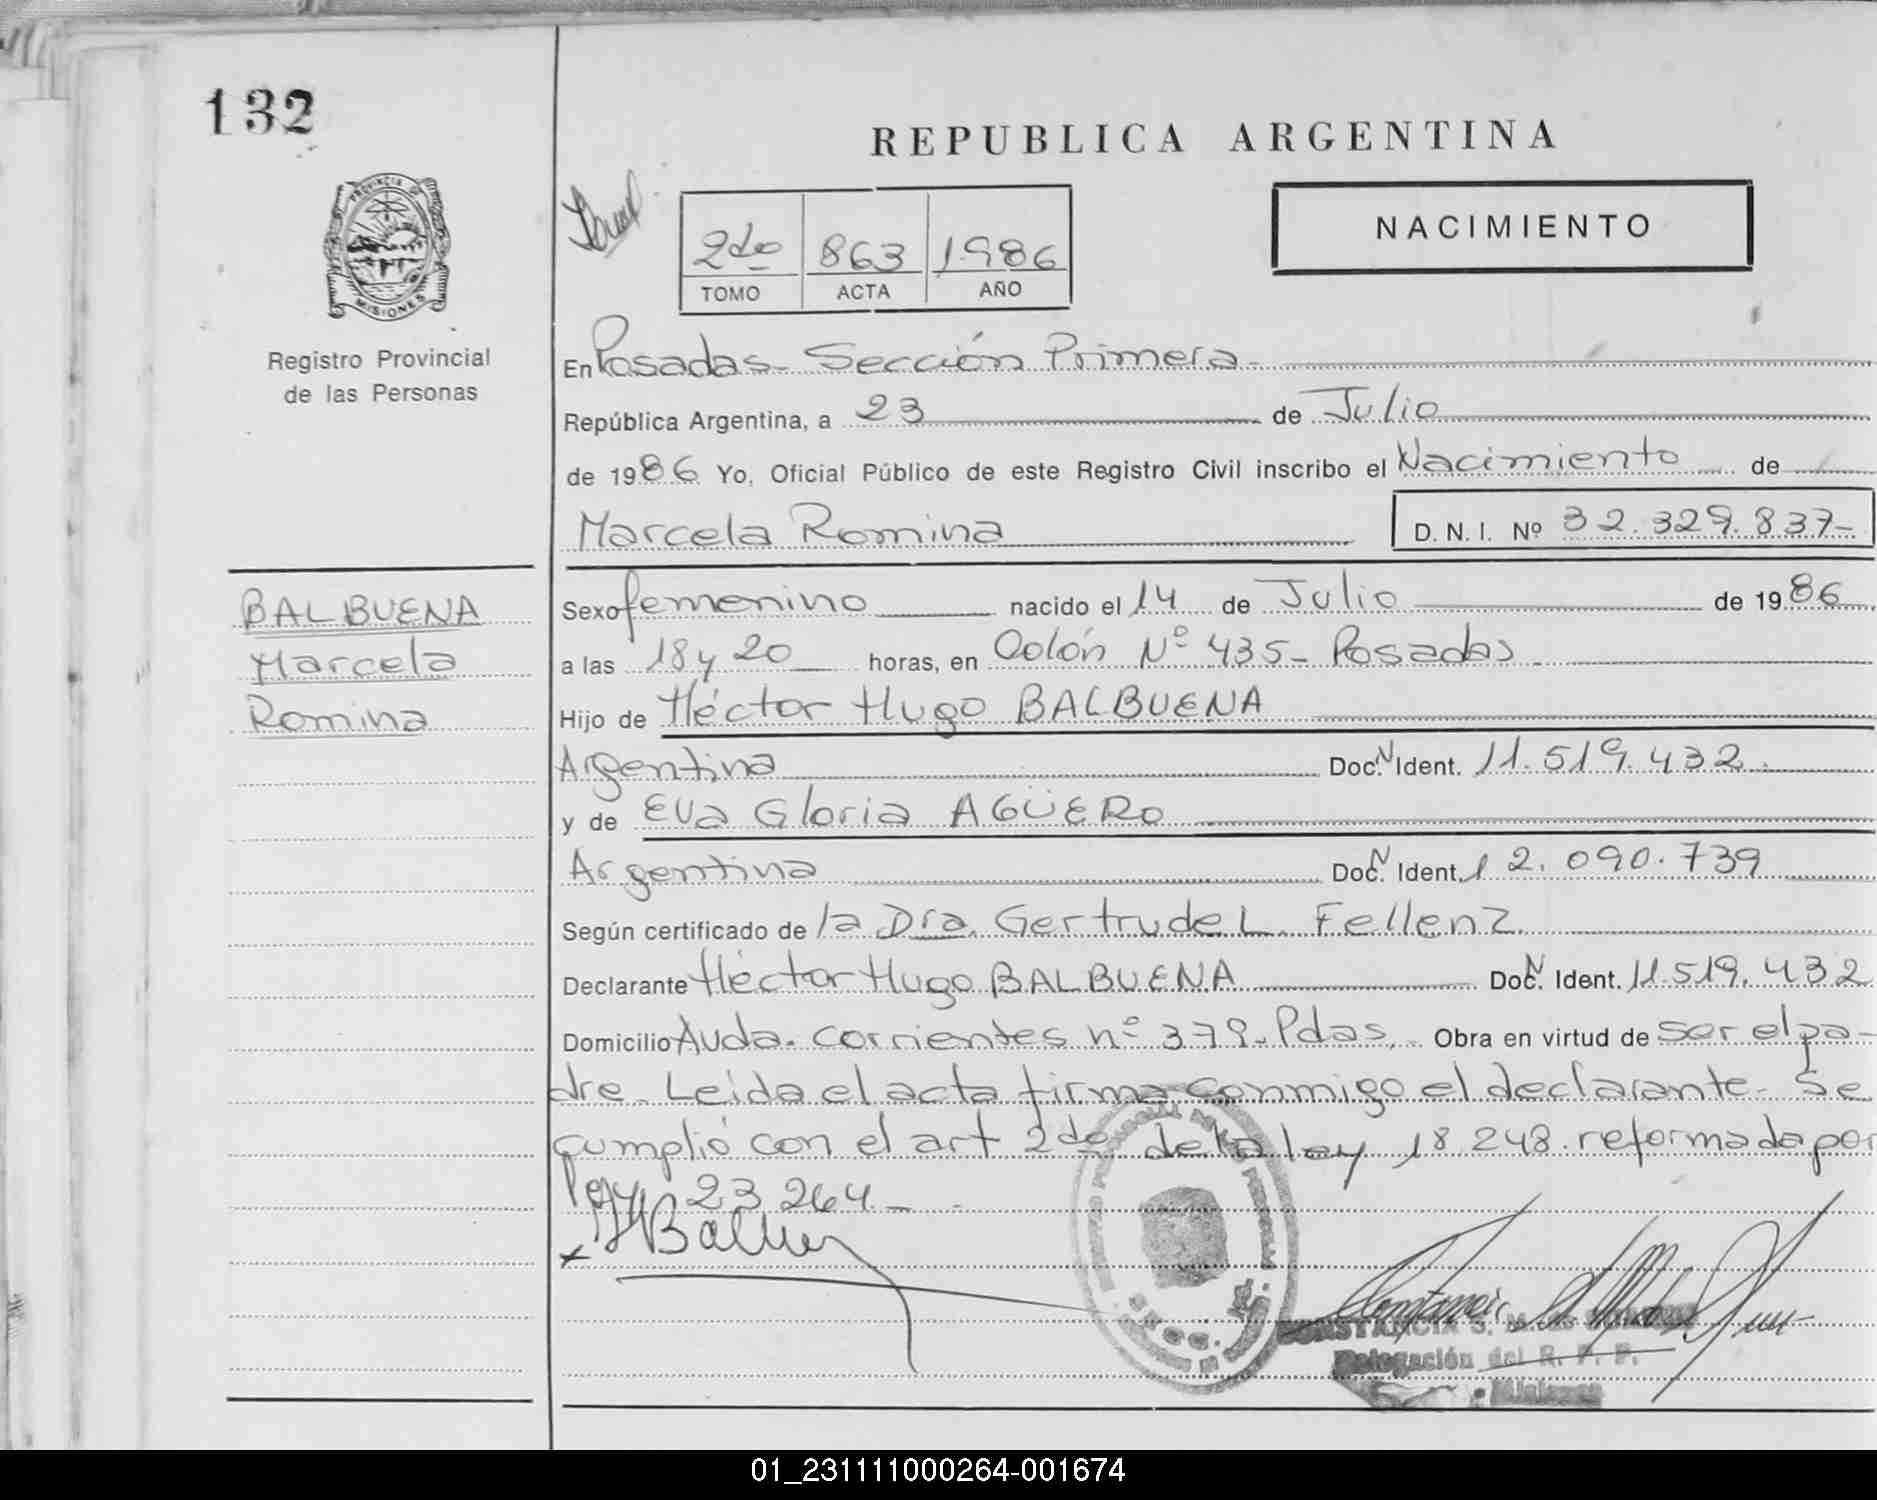 132
REPUBLICA ARGENTINA
NACIMIENTO
2do 863 1986
TOMO ACTA AÑO
PROVINCIA DE
MISIONES
Registro Provincial
de las Personas
En Posadas - Sección Primera -
República Argentina, a 23 de Julio
de 1986 Yo, Oficial Público de este Registro Civil inscribo el Nacimiento de
Marcela Romina D.N.I. Nº 32.329.837-
BALBUENA
Marcela
Romina
Sexo femenino nacido el 14 de Julio de 1986
a las 18 y 20 horas, en Colón Nº 435 - Posadas
Hijo de Héctor Hugo BALBUENA
Argentina Doc. N Ident. 11.519.432.
y de Eva Gloria AGÜERO
Argentina Doc. N Ident. 12.090.739
Según certificado de la Dra. Gertrude L. Fellenz
Declarante Héctor Hugo BALBUENA Doc. N Ident. 11.519.432
Domicilio Avda. Corrientes nº 379. Pdas. Obra en virtud de ser el pa-
dre. Leida el acta firma conmigo el declarante - Se
cumplió con el art 2do de la ley 18.248. reformada por
ley 23.264. -
CONSTANCIA S. M.
Delegación del R. P. P.
Misiones
01_231111000264-001674